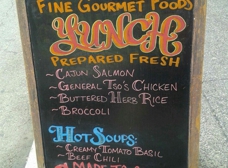 FINE GOURMET FOODS
LUNCH
PREPARED FRESH
~ CAJUN SALMON
~ GENERAL TSO'S CHICKEN
~ BUTTERED HERB RICE
~ BROCCOLI
HOT SOUPS:
~ CREAMY TOMATO BASIL
~ BEEF CHILI
MADE TO